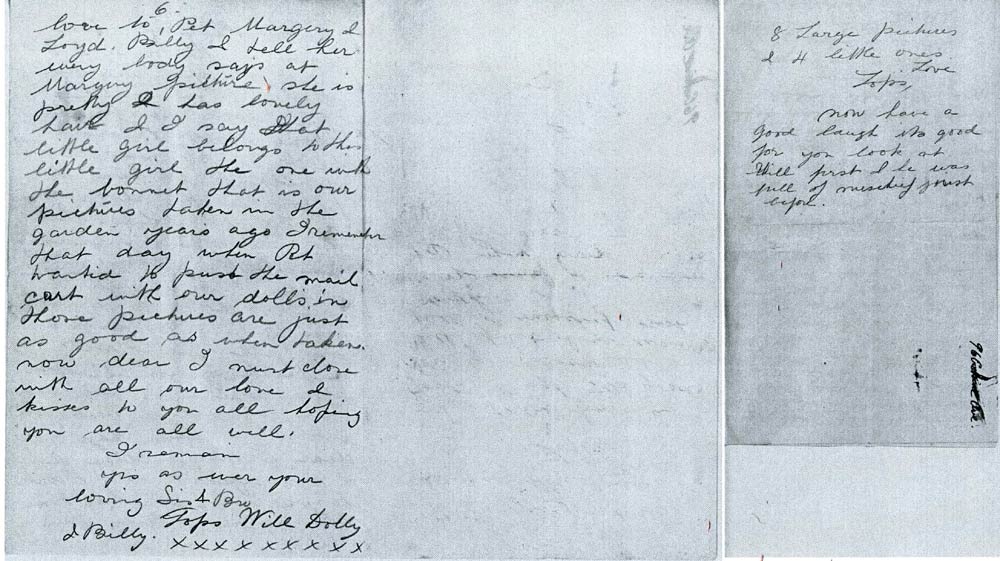 6.
love to Pet Margery &
Loyd. Billy I tell her
every body says at
Margery picture she is
pretty & has lovely
hair & I say that
little girl belongs to this
little girl the one with
the bonnet that is our
pictures taken in the
garden years ago I remember
that day when Pet
wanted to push the mail
cart with our dolls in
those pictures are just
as good as when taken.
now dear I must close
with all our love &
kisses to you all hoping
you are all well.
I remain
yrs as ever your
loving Sis & Bro
Tops Will Dolly
& Billy. x x x x x x x x x
8 Large pictures
& 4 little ones
Love
Tops,
now have a
good laugh its good
for you look at
Will first & he was
full of mischief just
before.